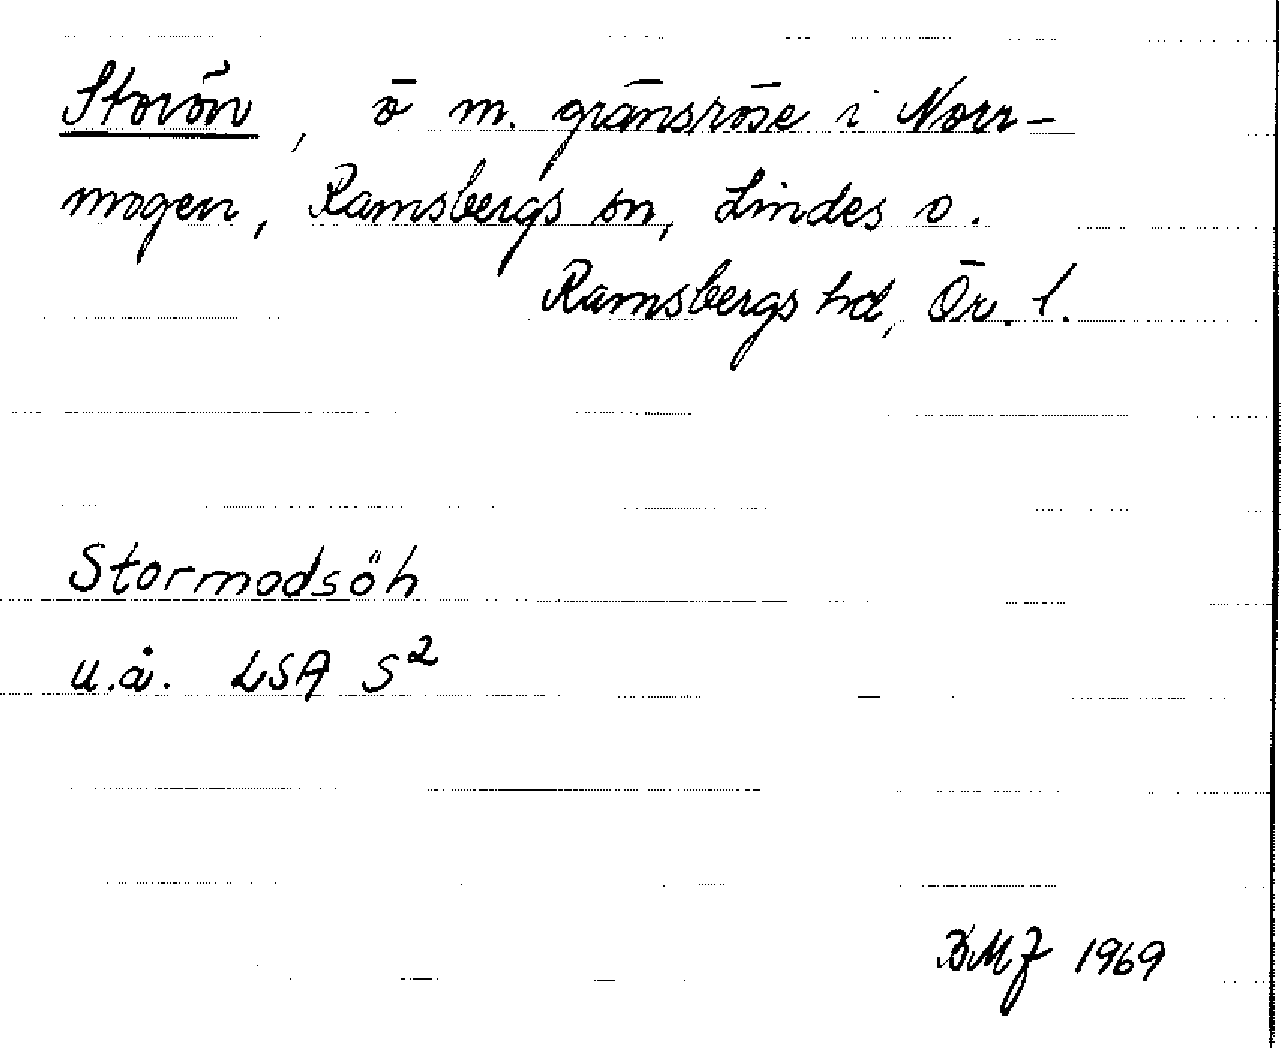 Storön, ö m. gränsröse i Norr-
mogen, Ramsbergs sn, Lindes o.
Ramsbergs hd, Ör. l.
Stormodsöh
u.å. LSA S²
BMJ 1969